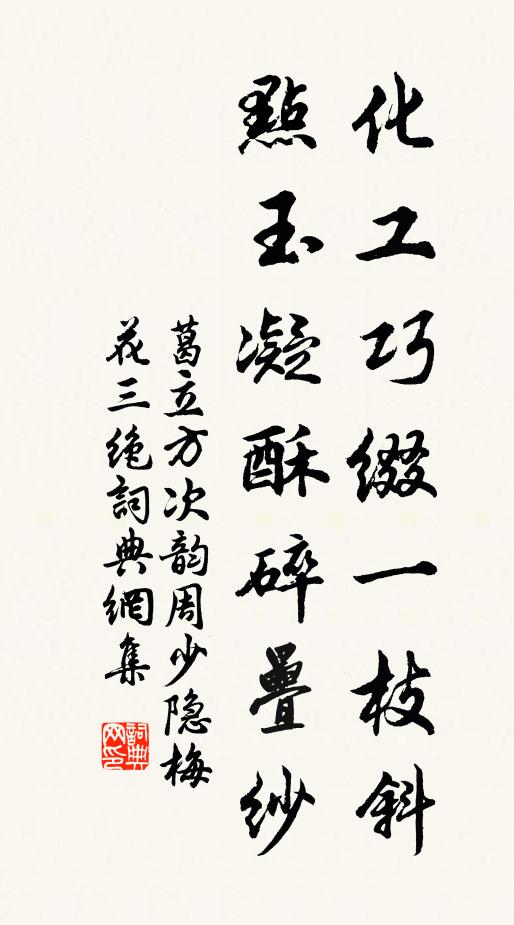 化工巧缀一枝斜
點玉凝酥碎疊紗
葛立方次韵周少隐梅
花三绝詞典網集
詞典
网印